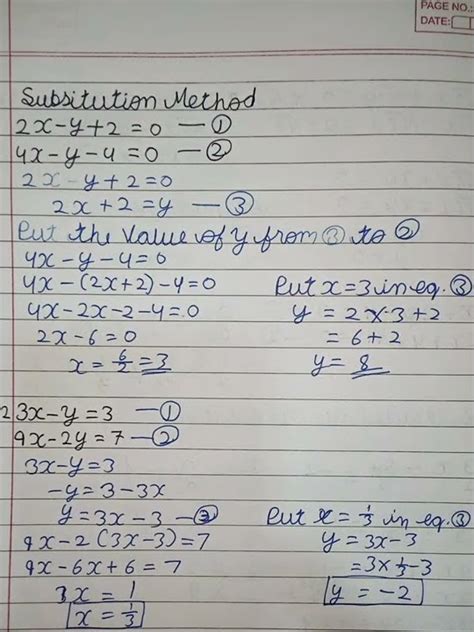 PAGE NO.:
DATE:
Subsitution Method
2x-y+2=0 — ①
4x-y-4=0 — ②
2x-y+2=0
2x+2=y — ③
Put the Value of y from ③ to ②
4x-y-4=0
4x-(2x+2)-4=0
4x-2x-2-4=0
2x-6=0
x=6/2=3
Put x=3 in eq. ③
y = 2×3+2
= 6+2
y= 8
2 3x-y=3 — ①
9x-2y=7 — ②
3x-y=3
-y=3-3x
y=3x-3 — ③
9x-2(3x-3)=7
9x-6x+6=7
3x=1
x=1/3
Put x=1/3 in eq. ③
y=3x-3
=3×1/3-3
y=-2